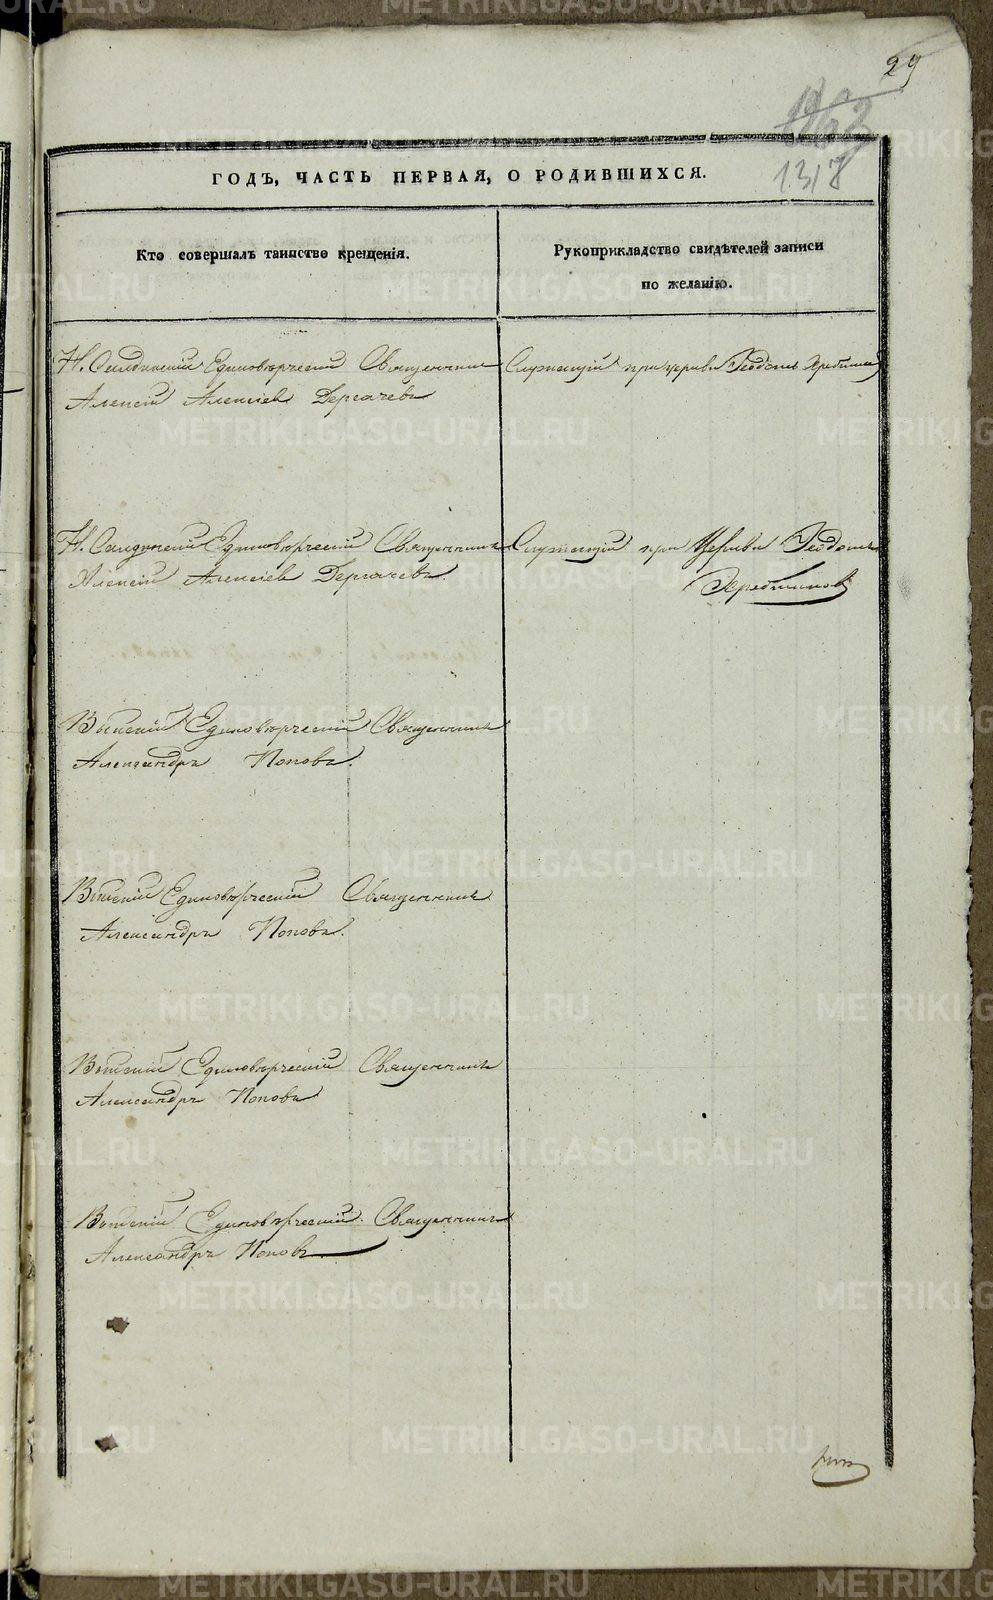 29
1317
ГОДЪ, ЧАСТЬ ПЕРВАЯ, О РОДИВШИХСЯ.
Кто совершалъ таинство крещенія.
Рукоприкладство свидѣтелей записи
по желанію.
Н. Салдинскій Единовѣрческій Священникъ
Алексій Алексіевъ Дергачевъ
Служащій при церкви Ѳеодотъ
Н. Салдинскій Единовѣрческій Священникъ
Алексій Алексіевъ Дергачевъ.
Служащій при Церкви Ѳеодотъ
Единовѣрческій Священникъ
Александръ Поповъ.
Единовѣрческій Священникъ
Александръ Поповъ.
Единовѣрческій Священникъ
Александръ Поповъ
Единовѣрческій Священникъ
Александръ Поповъ
METRIKI.GASO-URAL.RU